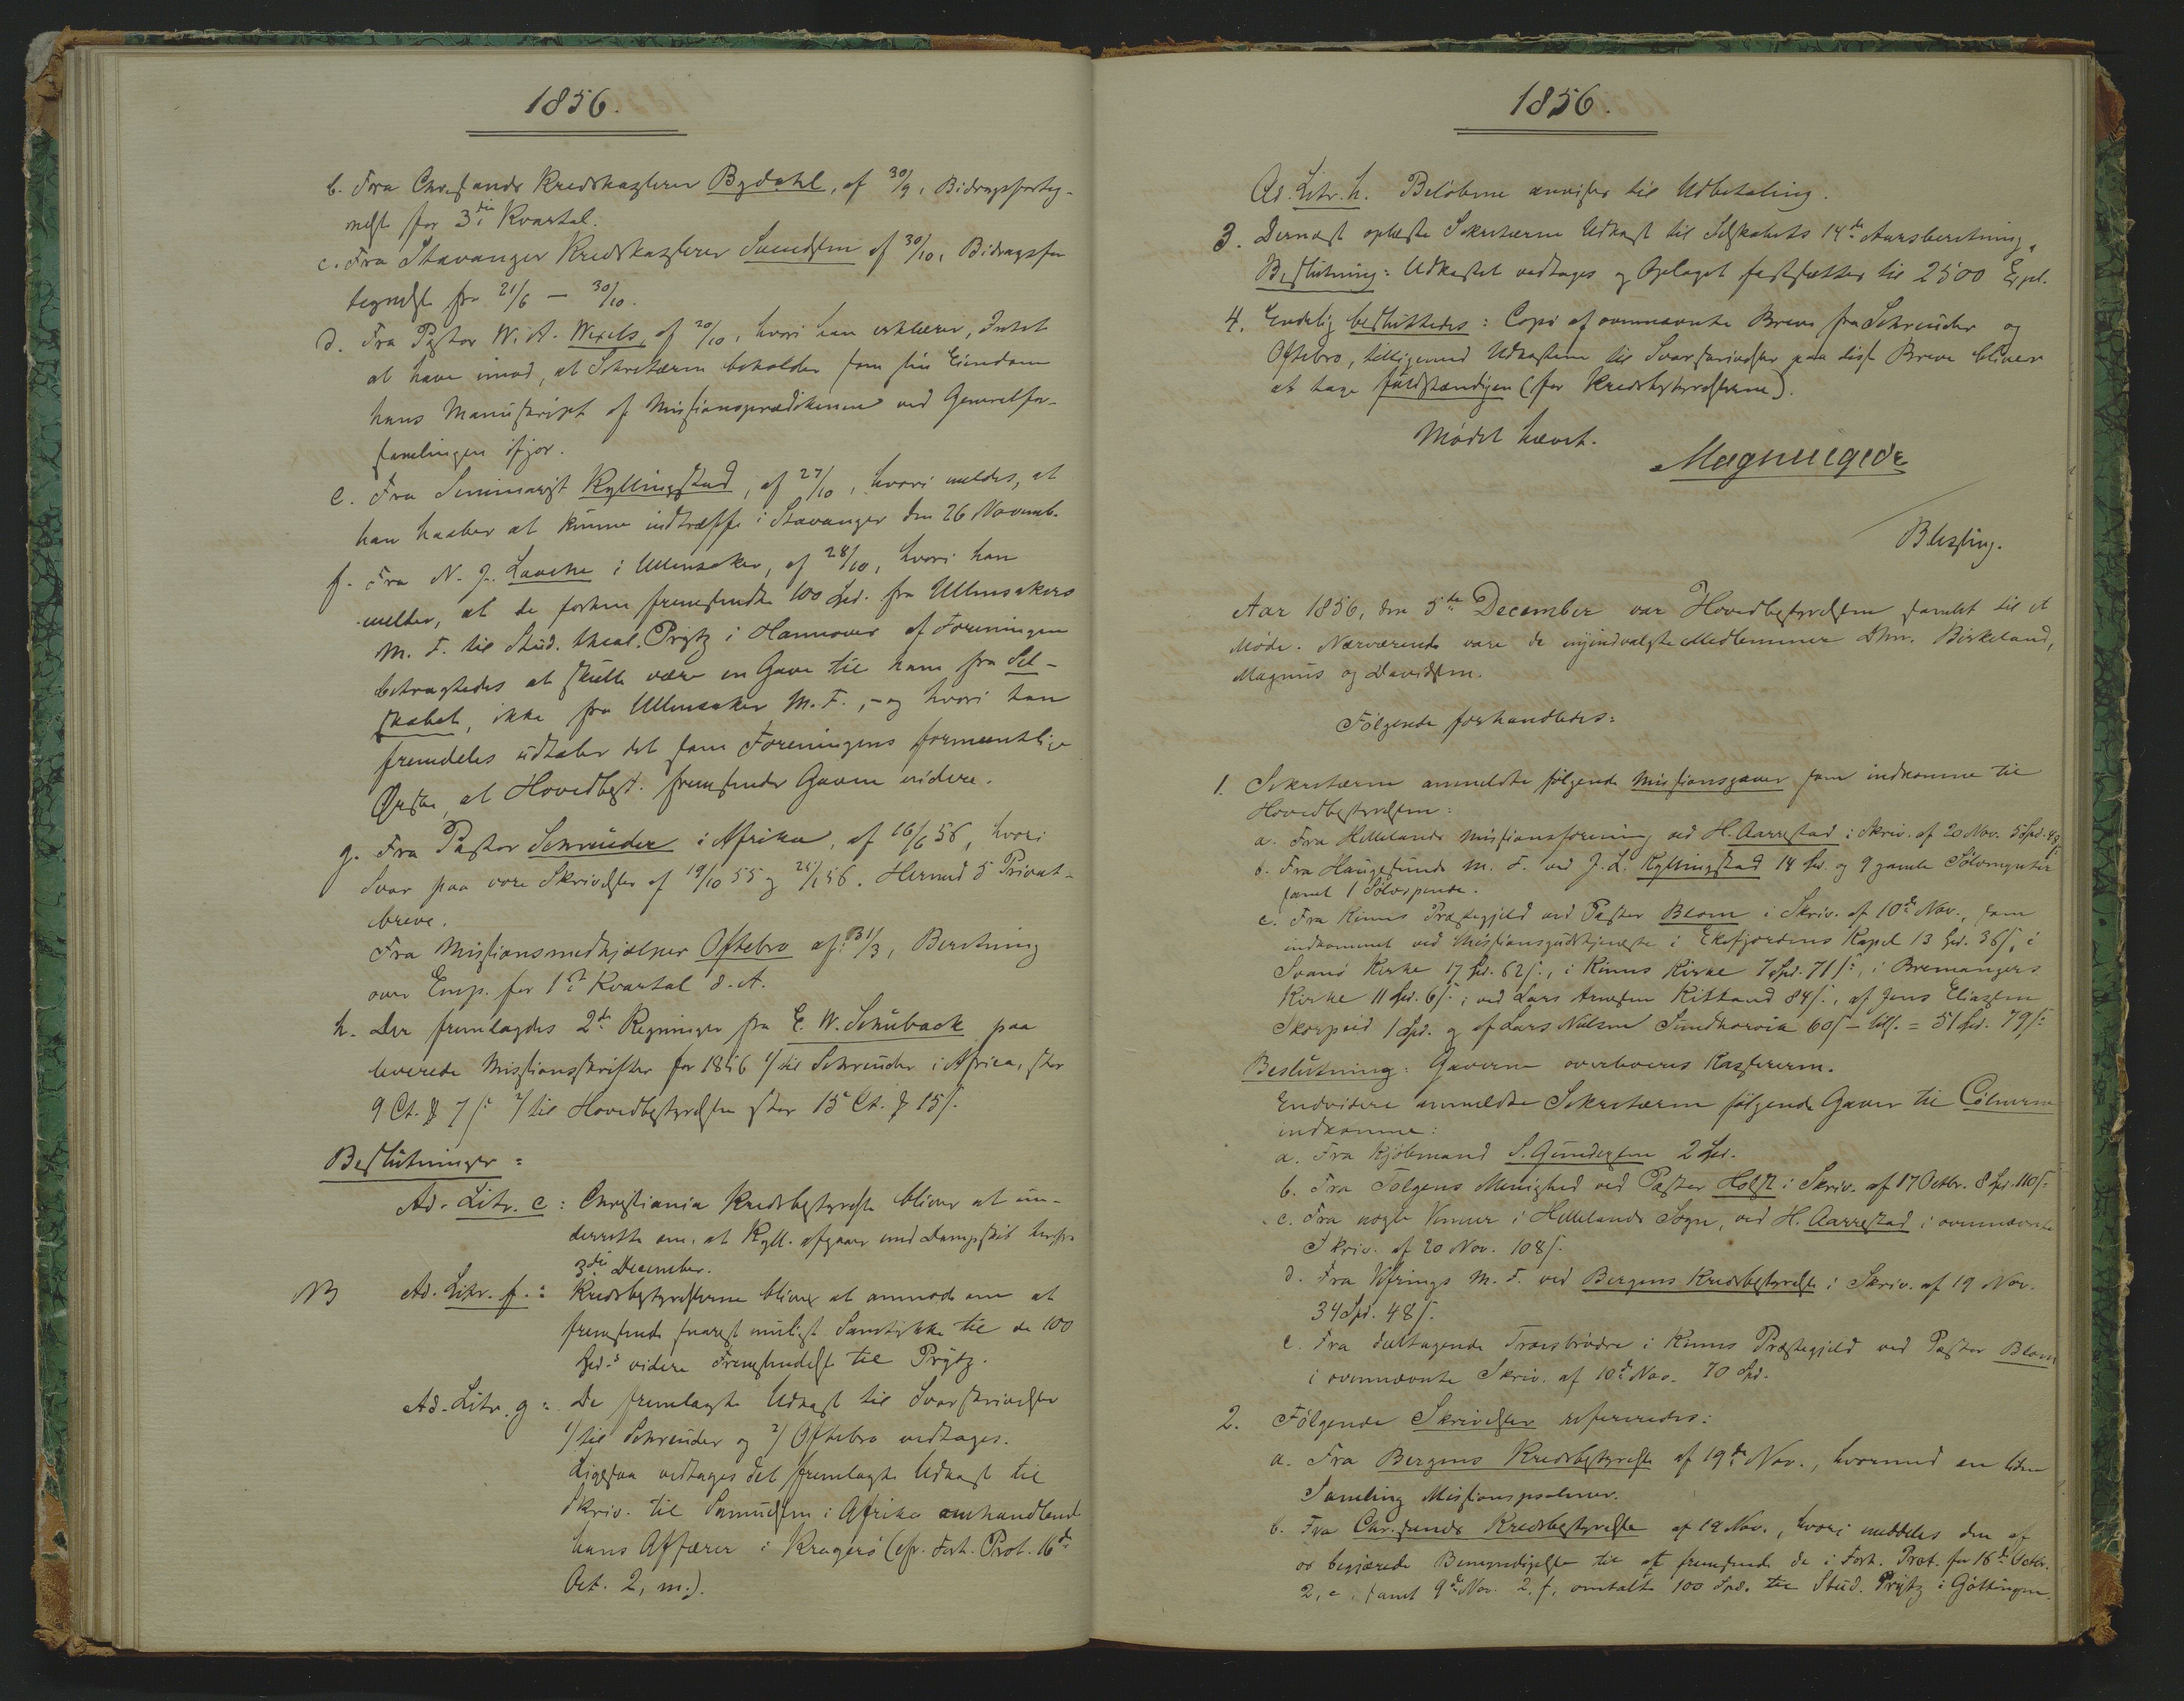 1856.
b. Fra Chr.sands Kredskasserer Bydahl, af 30/9, Bidragsforteg-
nelse for 3die Kvartal.
c. Fra Stavanger Kredskasserer Svendsen af 30/10, Bidragsfor
tegnelse fra 21/6 — 30/10.
d. Fra Pastor W. A. Wexels, af 20/10, hvori han erklærer, Intet
at have imod, at Sekretæren beholder som sin Eiendom
hans Manuskript af Missionsprædikenen ved Generalfor-
samlingen ifjor.
e. Fra Seminarist Kyllingstad, af 27/10, hvori meldes, at
han haaber at kunne indtræffe i Stavanger den 26 Novemb.
f. Fra N. J. Laache i Ullensaker, af 28/10, hvori han
melder, at de forhen fremsendte 100 Spd. fra Ullensakers
M. F. til Stud. theol. Prytz i Hannover af Foreningen
betragtedes at skulle være en Gave til ham fra Sel-
skabet, ikke fra Ullensaker M. F., - og hvori han
fremdeles udtaler det som Foreningens formentlige
Ønske, at Hovedbest. fremsender Gaven videre.
g. Fra Pastor Schreuder i Afrika, af 16/6 56, hvori
Svar paa vore Skrivelser af 19/10 55 og 25/1 56. Hermed 5 Privat-
breve.
Fra Missionsmedhjælper Oftebro af 31/3, Beretning
over Emp. for 1ste Kvartal d. A.
h. Der fremlagdes 2de Regninger fra E. W. Schuback paa
leverede Missionsskrifter for 1856 1/ til Schreuder i Africa, stor
9 Ct. ₰ 7 ſ. 2/ til Hovedbestyrelsen stor 15 Ct. ₰ 15 ſ.
Beslutninger:
Ad. Litr. e: Christiania Kredsbestyrelse bliver at un-
derrette om, at Kyll. afgaar med Dampskib herfra
3die December.
NB Ad. Litr. f.: Kredsbestyrelserne bliver at anmode om at
fremsende snarest muligt Samtykke til de 100
Spd.s videre Fremsendelse til Prytz.
Ad. Litr. g: De fremlagte Udkast til Svarskrivelser
1/ til Schreuder og 2/ Oftebro vedtages.
Ligesaa vedtages det fremlagte Udkast til
Skriv. til Samuelsen i Afrika omhandlende
hans Affærer i Kragerø (cfr. Forh. Prot. 16de
Oct. 2, m.).
1856.
Ad. Litr. h. Beløbene anvises til Udbetaling.
3. Dernæst oplæste Sekretæren Udkast til Selskabets 14de Aarsberetning.
Beslutning: Udkastet vedtages og Oplaget fastsættes til 2500 Expl.
4. Endelig besluttedes: Copi af ovennævnte Breve fra Schreuder og
Oftebro, tilligemed Udkastene til Svarskrivelser paa disse Breve bliver
at tage fuldstændigen (for Kredsbestyrelserne).
Mødet hævet.
Blessing.
Aar 1856, den 5te December var Hovedbestyrelsen samlet til et
Møde. Nærværende vare de nyindvalgte Medlemmer DHrr. Birkeland,
Magnus og Davidsen.
Følgende forhandledes:
1. Sekretæren anmeldte følgende Missionsgaver som indkomne til
Hovedbestyrelsen:
a. Fra Hellelands Missionsforening ved H. Aarrestad i Skriv. af 20 Nov. 5 Spd. 48 ſ
b. Fra Haugesunds M. F. ved J. L. Kyllingstad 14 Spd. og 9 gamle Sølvmynter
samt 1 Sølvspende.
c. Fra Kinns Præstegjeld ved Pastor Blom i Skriv. af 10de Nov., som
indkommet ved Missionsgudstjeneste i Eikefjordens Kapel 13 Spd. 36 ſ, i
Svanø Kirke 17 Spd. 62 ſ., i Kinns Kirke 7 Spd. 71 ſ., i Bremangers
Kirke 11 Spd. 6 ſ.; ved Lars Arnesen Kitland 84 ſ., af Jens Eliassen
Skorpeid 1 Spd. og af Lars Nielsen 60 ſ - tils. = 51 Spd. 79 ſ.
Beslutning: Gaverne overleveres Kassereren.
Endvidere anmeldte Sekretæren følgende Gaver til Cölnerne
indkomne:
a. Fra Kjøbmand S. Gundersen 2 Spd.
b. Fra Tolgens Menighed ved Pastor Holst i Skriv. af 17 Octbr. 8 Spd. 110 ſ.
c. Fra nogle Venner i Hellelands Sogn, ved H. Aarrestad i ovennævnte
Skriv. af 20 Nov. 108 ſ.
d. Fra Vefrings M. F. ved Bergens Kredsbestyrelse i Skriv. af 19 Nov.
34 Spd. 48 ſ.
e. Fra deeltagende Troesbrødre i Kinns Præstegjeld ved Pastor Blom
i ovennævnte Skriv. af 10de Nov. 70 Spd.
2. Følgende Skrivelser refereredes:
a. Fra Bergens Kredsbestyrelse af 19de Nov., hvormed en liden
Samling Missionspsalmer.
b. Fra Chr.sands Kredsbestyrelse af 12 Nov., hvori meddeles den af
os begjærede Bemyndigelse til at fremsende de i Forh. Prot. for 16de Octbr.
2, e, samt 9de Nov. 2, f, omtalte 100 Spd. til Stud. Prytz i Göttingen.